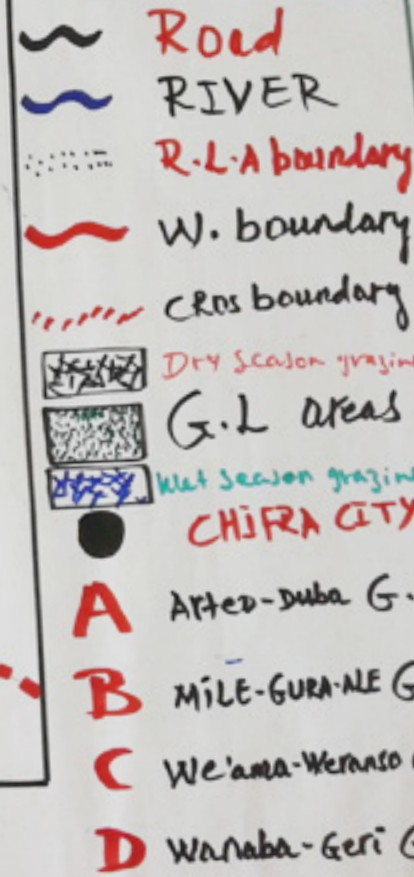 Road
RIVER
R.L.A boundary
W. boundary
CRDs boundary
Dry Season grazin
G.L areas
Wet Season grazin
CHIFRA CITY
A Arteo-Duba G.
B MiLE-GURA-ALE G
C We'ama-Weranso
D Wanaba-Geri G